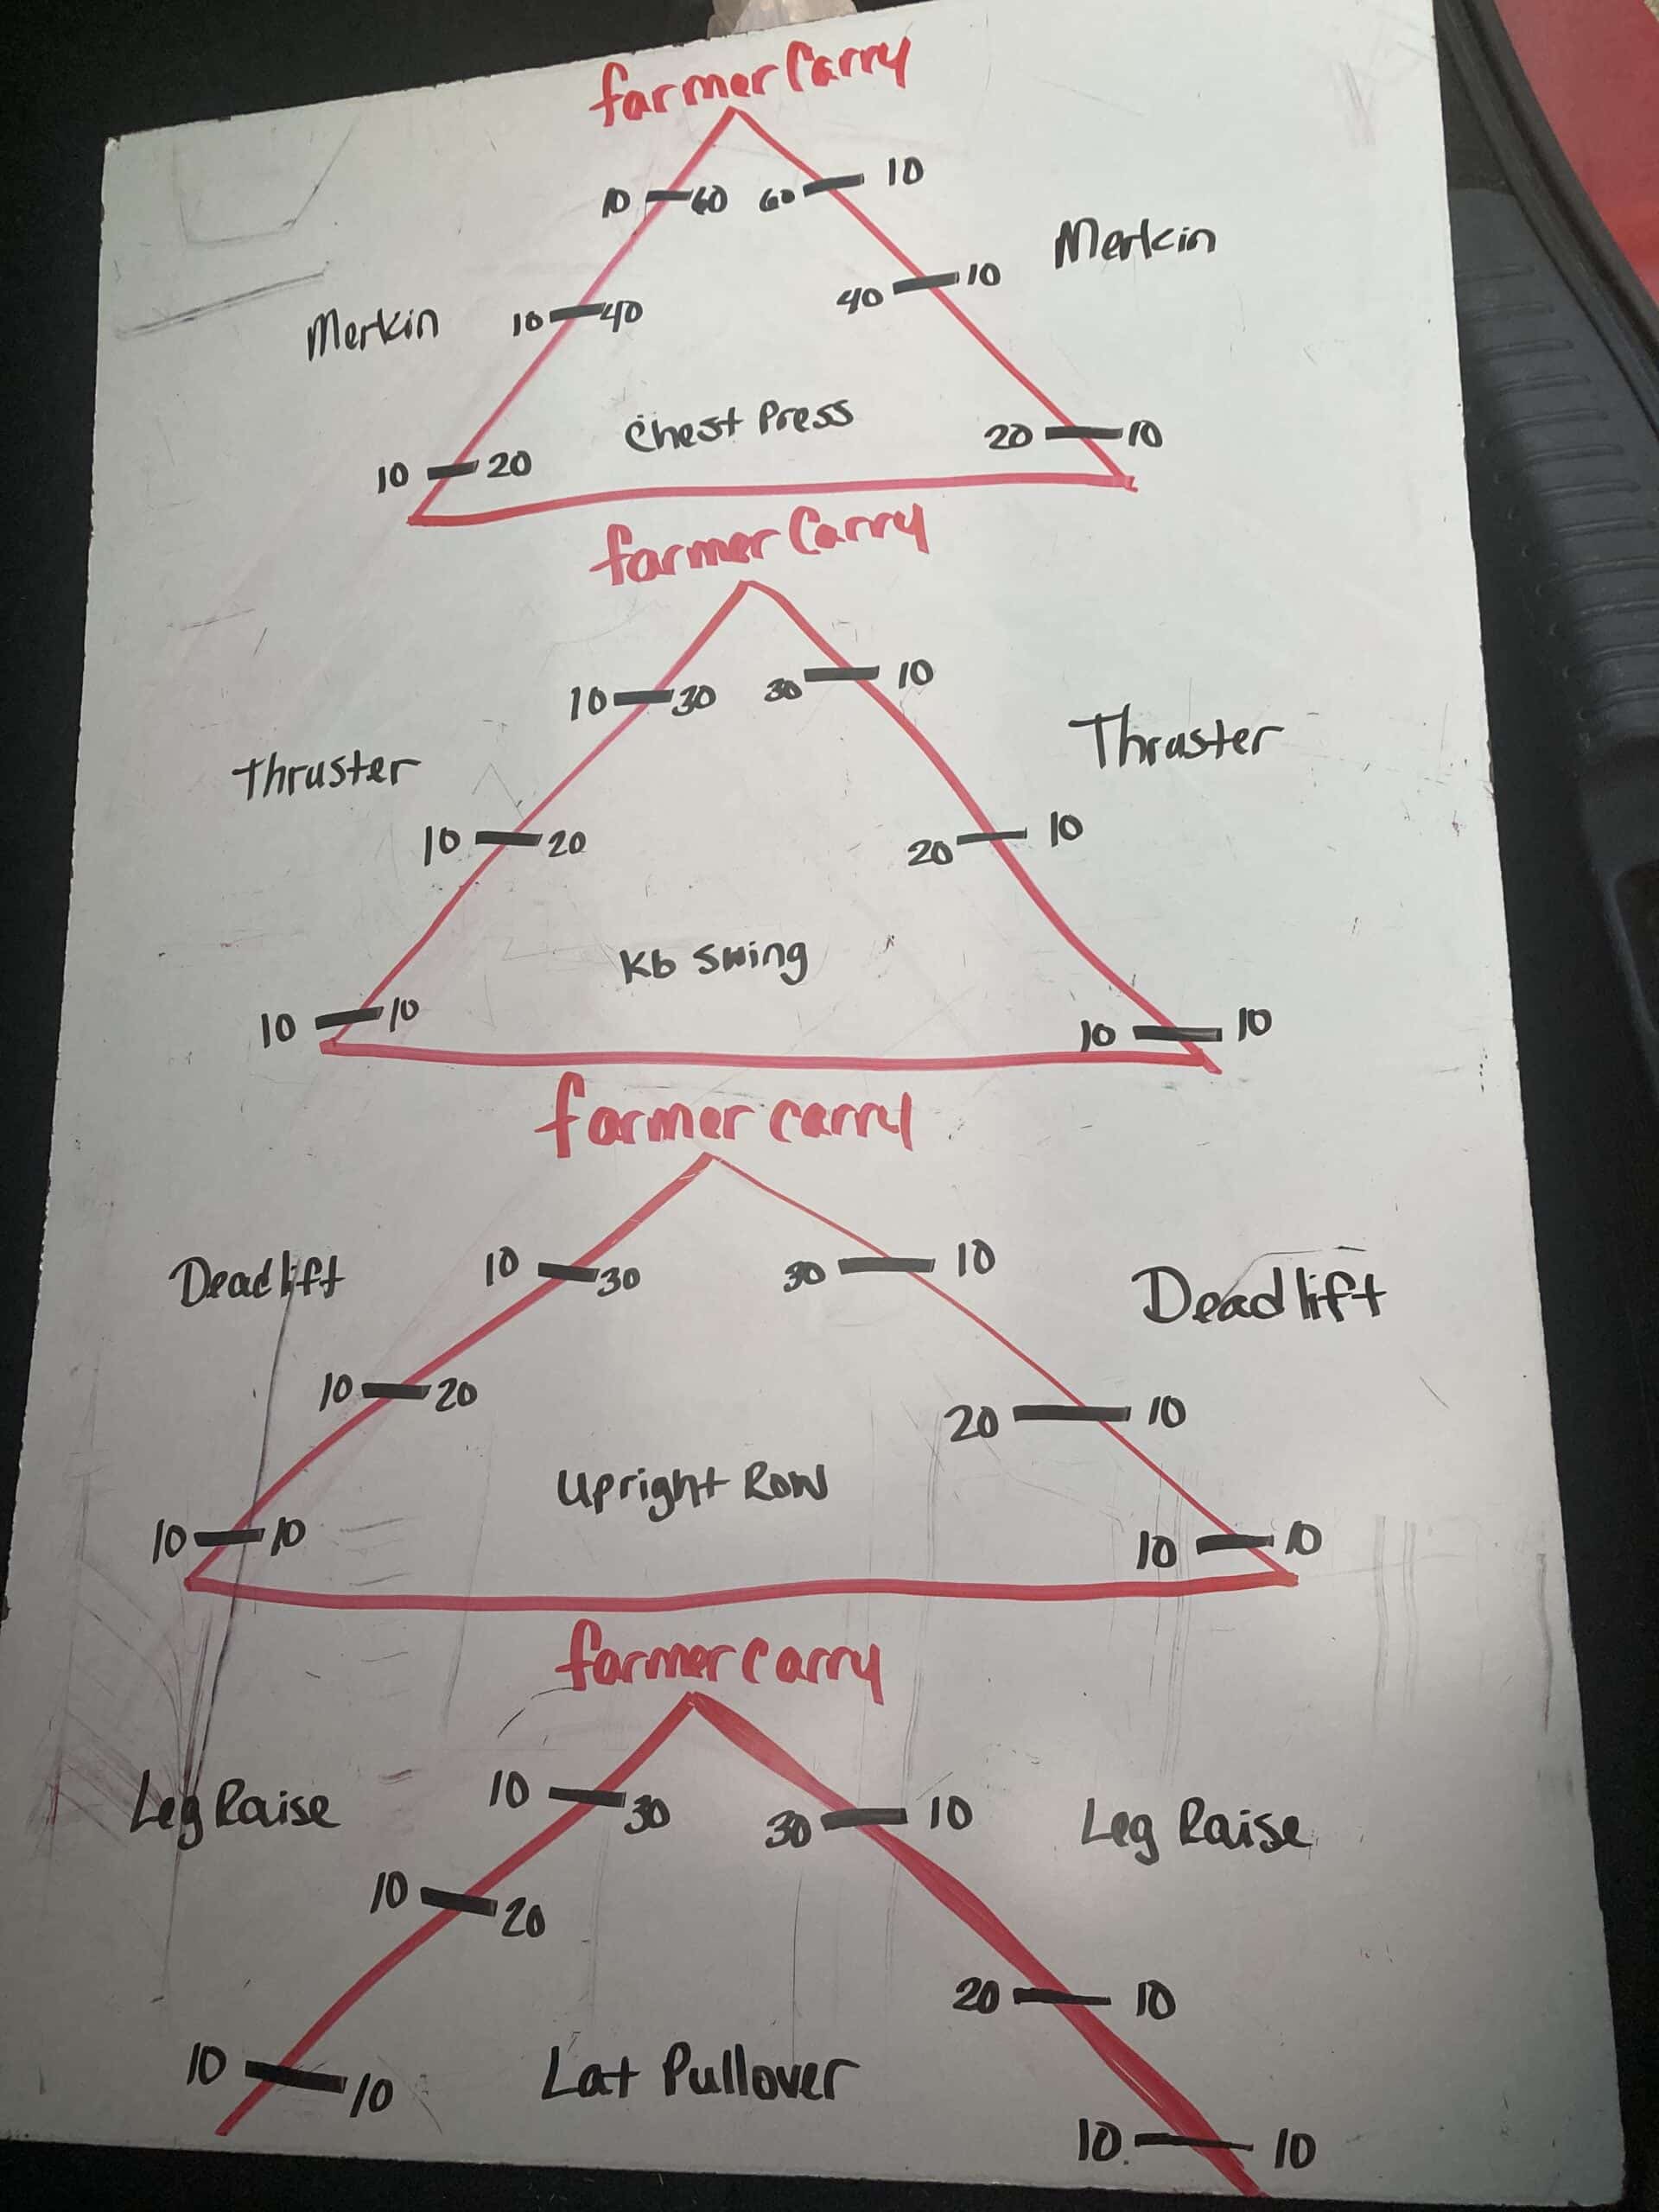 farmer Carry
10 60 60 10
Merkin
10 40
Merkin 10 40
Chest Press
20 10
10 20
farmer Carry
10 30 30 10
Thruster
Thruster
10 20 20 10
Kb Swing
10 10 10 10
farmer carry
Deadlift 10 30 30 10 Deadlift
10 20 20 10
Upright Row
10 10 10 10
farmer carry
Leg Raise 10 30 30 10 Leg Raise
10 20
20 10
10 10 Lat Pullover
10 10